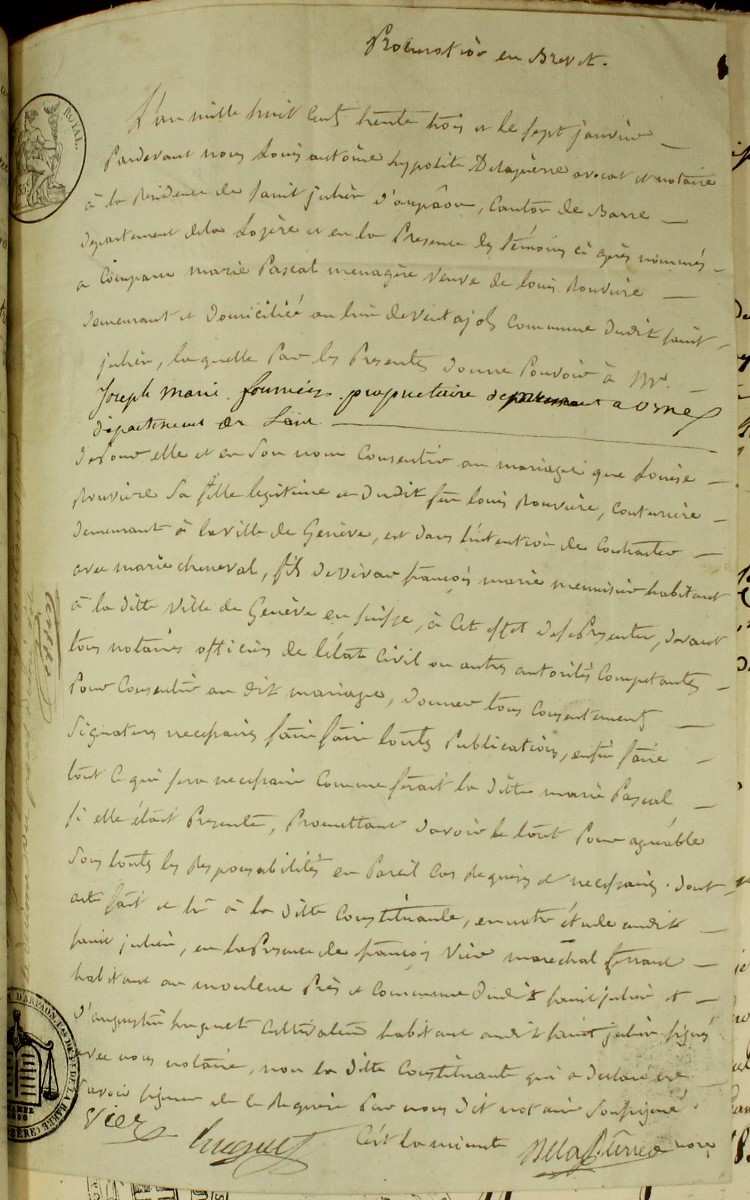 Procuration en Brevet.
ROYAL.
L'an mille huit cent trente trois et le sept janvier
Pardevant nous Louis antoine hypolite Delapierre avocat et notaire
à la Residence de saint julien d'arpaon, Canton de Barre
departement de la Lozère et en la Presence des témoins ci après nommés
a Comparu marie Pascal menagère veuve de Louis Rouvière
demeurant et domiciliée au lieu de Ventajols Commune dudit saint
julien, laquelle Par les Presentes donne Pouvoir à Mr.
Joseph Marie fournier proprietaire a ornex
département de Lain
de Pour elle et en son nom Consentir au mariage que Louise
Rouvière sa fille legitime et dudit feu Louis Rouvière, Couturière
demeurant à la ville de Genève, est dans l'intention de Contracter
avec marie cheneval, fils de vivant françois marie menuisier habitant
à la ditte ville de Genève en suisse, à Cet effet de se Presenter, devant
tous notaires officiers de l'état Civil ou autres autorités Competantes
Pour Consentir au dit mariage, donner tous Consentements
signatures necessaires faire faire toutes Publications, enfin faire
tout ce qui sera necessaire Comme ferait la ditte marie Pascal
si elle était Presente, Promettant d'avoir le tout Pour agréable
sous toutes les responsabilités en Pareil Cas requises et necessaires. dont
acte fait et lu à la ditte Constituante, en notre étude audit
saint julien, en la Presence de françois Vier maréchal ferrant
habitant au Près et Commune dudit saint julien et
d'augustin huguet Cultivateur habitant audit saint julien signés
avec nous notaire, non la ditte Constituante qui a declaré ne
savoir signer de ce requise Par nous dit notaire soussigné.
Vier huguet C'est la minute Delapierre nore